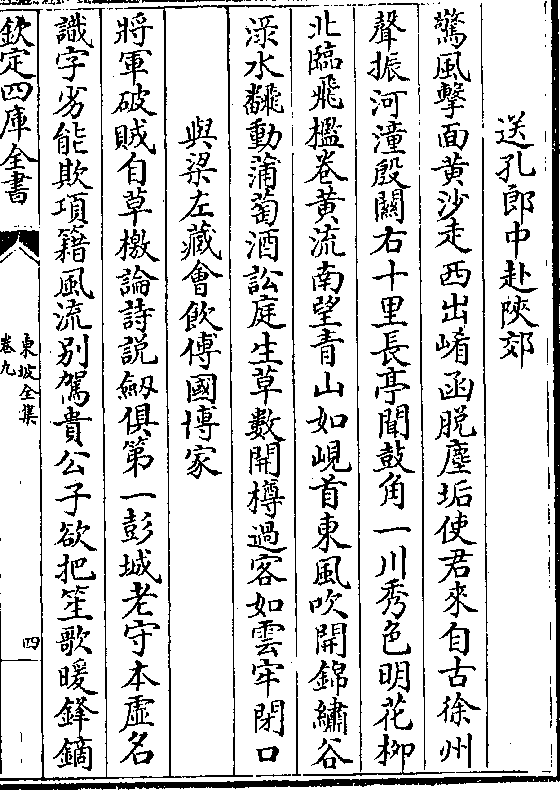 送孔郎中赴陜郊
驚風擊面黄沙走西出崤函脱塵垢使君來自古徐州
聲振河潼殷關右十里長亭聞鼓角一川秀色明花柳
北臨飛檻卷黄流南望青山如峴首東風吹開錦繡谷
渌水飜動蒲萄酒訟庭生草數開樽過客如雲牢閉口
與梁左藏會飲傅國博家
將軍破賊自草檄論詩説劔俱第一彭城老守本虛名
識字劣能欺項籍風流別駕貴公子欲把笙歌暖鋒鏑
欽定四庫全書
東坡全集
卷九
四